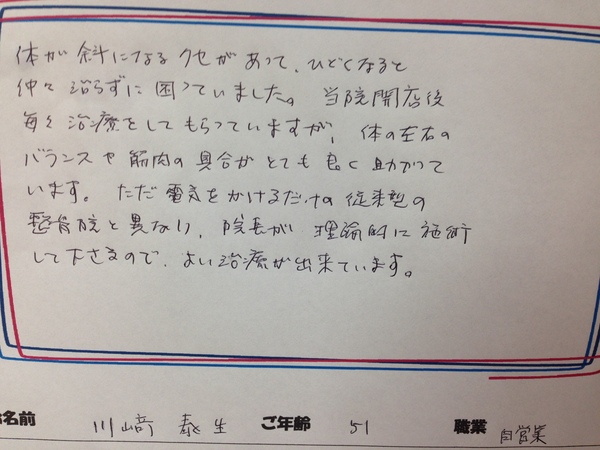 体が斜になるクセがあって、ひどくなると
仲々治らずに困っていました。当院開店後
毎々治療をしてもらっていますが、体の左右の
バランスや筋肉の具合がとても良く助かって
います。ただ電気をかけるだけの従来型の
整骨院と異なり、院長が理論的に施術
して下さるので、よい治療が出来ています。
お名前 川﨑 泰生 ご年齢 51 職業 自営業